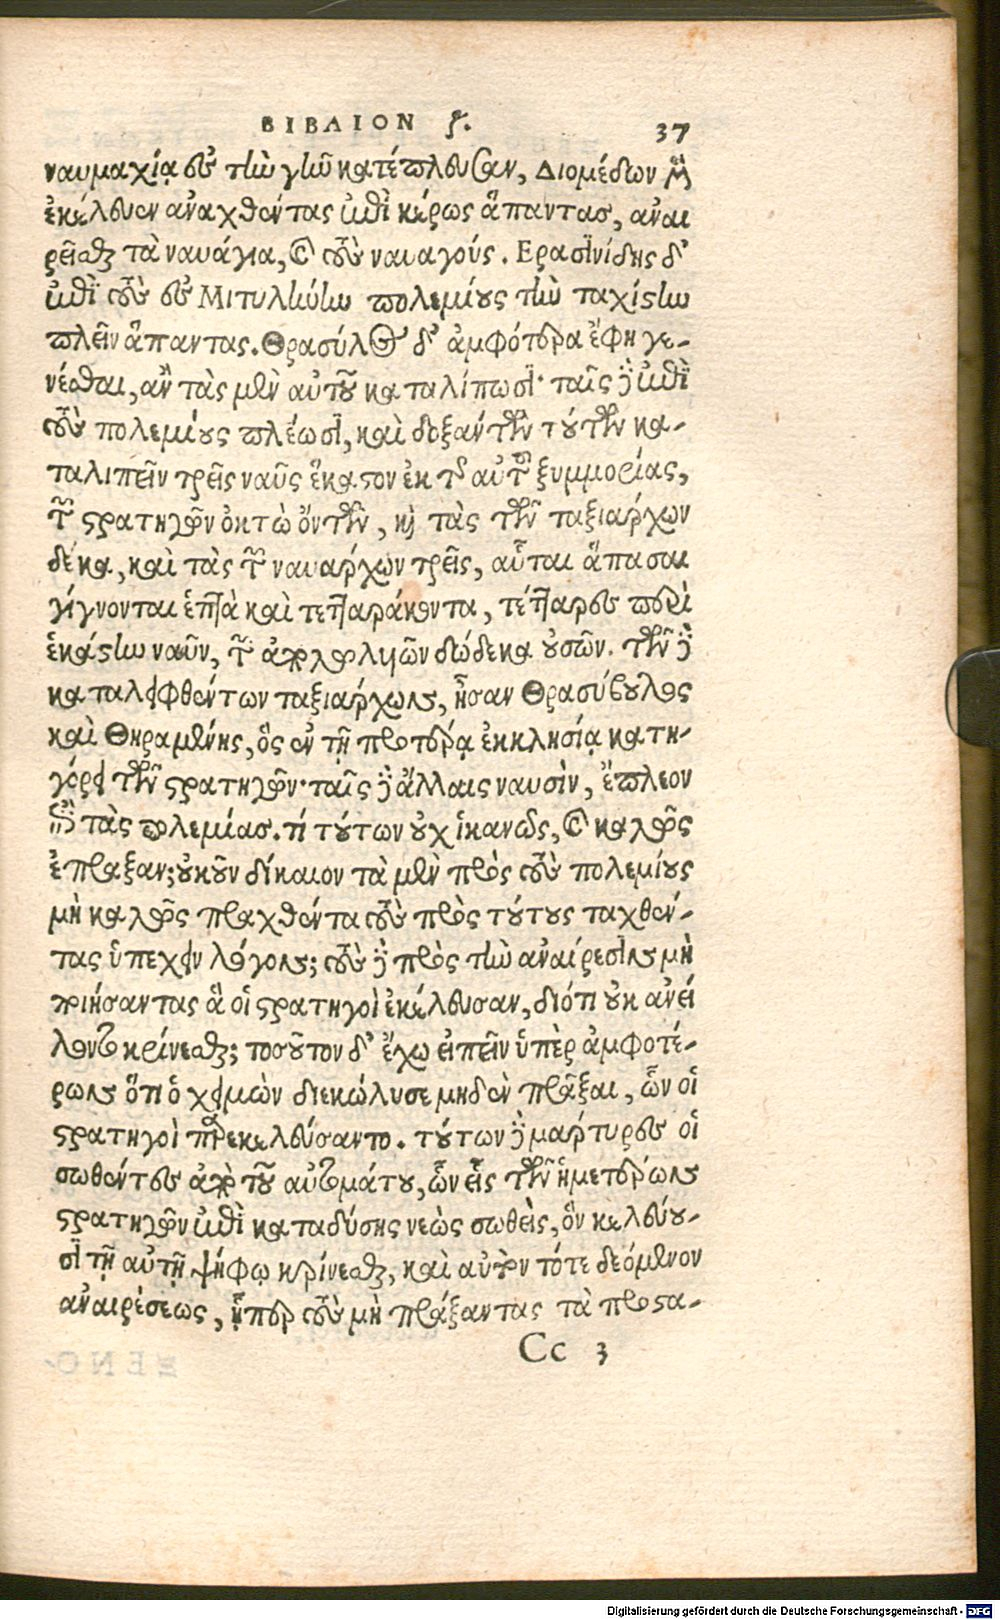 ΒΙΒΛΙΟΝ ϛ. 37
ναυμαχίᾳ εἰς τὴν γῆν κατέπλευσαν, Διομέδων μὲν
ἐκέλευεν ἀναχθέντας ἐπὶ κέρως ἅπαντας, ἀναι
ρεῖσθαι τὰ ναυάγια, καὶ τοὺς ναυαγούς. Ερασινίδης δ᾽
ἐπὶ τοὺς εἰς Μιτυλήνην πολεμίους τὴν ταχίστην
πλεῖν ἅπαντας. Θρασύλος δ᾽ ἀμφότερα ἔφη γε-
νέσθαι, ἂν τὰς μὲν αὐτοῦ καταλίπωσι· ταῖς δὲ ἐπὶ
τοὺς πολεμίους πλέωσι, καὶ δοξάντων τούτων κα-
ταλιπεῖν τρεῖς ναῦς ἕκαστον ἐκ τῆς αὐτοῦ ξυμμορίας,
τῶν στρατηγῶν ὀκτὼ ὄντων, καὶ τὰς τῶν ταξιάρχων
δέκα, καὶ τὰς τῶν ναυάρχων τρεῖς, αὗται ἅπασαι
γίγνονται ἑπτὰ καὶ τετταράκοντα, τέτταρες περὶ
ἑκάστην ναῦν, τῶν ἀπολωλυιῶν δώδεκα οὐσῶν. τῶν δὲ
καταλειφθέντων ταξιάρχων, ἦσαν Θρασύβουλος
καὶ Θηραμένης, ὃς ἐν τῇ προτέρᾳ ἐκκλησίᾳ κατη-
γόρει τῶν στρατηγῶν· ταῖς δὲ ἄλλαις ναυσὶν, ἔπλεον
ἐπὶ τὰς πολεμίας. τί τούτων οὐχ ἱκανῶς, καὶ καλῶς
ἔπραξαν; οὐκοῦν δίκαιον τὰ μὲν πρὸς τοὺς πολεμίους
μὴ καλῶς πραχθέντα τοὺς πρὸς τούτους ταχθέν-
τας ὑπέχειν λόγον; τοὺς δὲ πρὸς τὴν ἀναίρεσιν μὴ
ποιήσαντας ἃ οἱ στρατηγοὶ ἐκέλευσαν, διότι οὐκ ἀνεί
λοντο κρίνεσθαι; τοσοῦτον δ᾽ ἔχω εἰπεῖν ὑπὲρ ἀμφοτέ-
ρων ὅτι ὁ χειμὼν διεκώλυσε μηδὲν πρᾶξαι, ὧν οἱ
στρατηγοὶ παρεκελεύσαντο. τούτων δὲ μάρτυρες οἱ
σωθέντες ἀπὸ τοῦ αὐτομάτου, ὧν εἷς τῶν ἡμετέρων
στρατηγῶν ἐπὶ καταδύσης νεὼς σωθεὶς, ὃν κελεύου-
σι τῇ αὐτῇ ψήφῳ κρίνεσθαι, καὶ αὐτὸν τότε δεόμενον
ἀναιρέσεως, ᾗπερ τοὺς μὴ πράξαντας τὰ προστα-
Cc 3
Digitalisierung gefördert durch die Deutsche Forschungsgemeinschaft - DFG